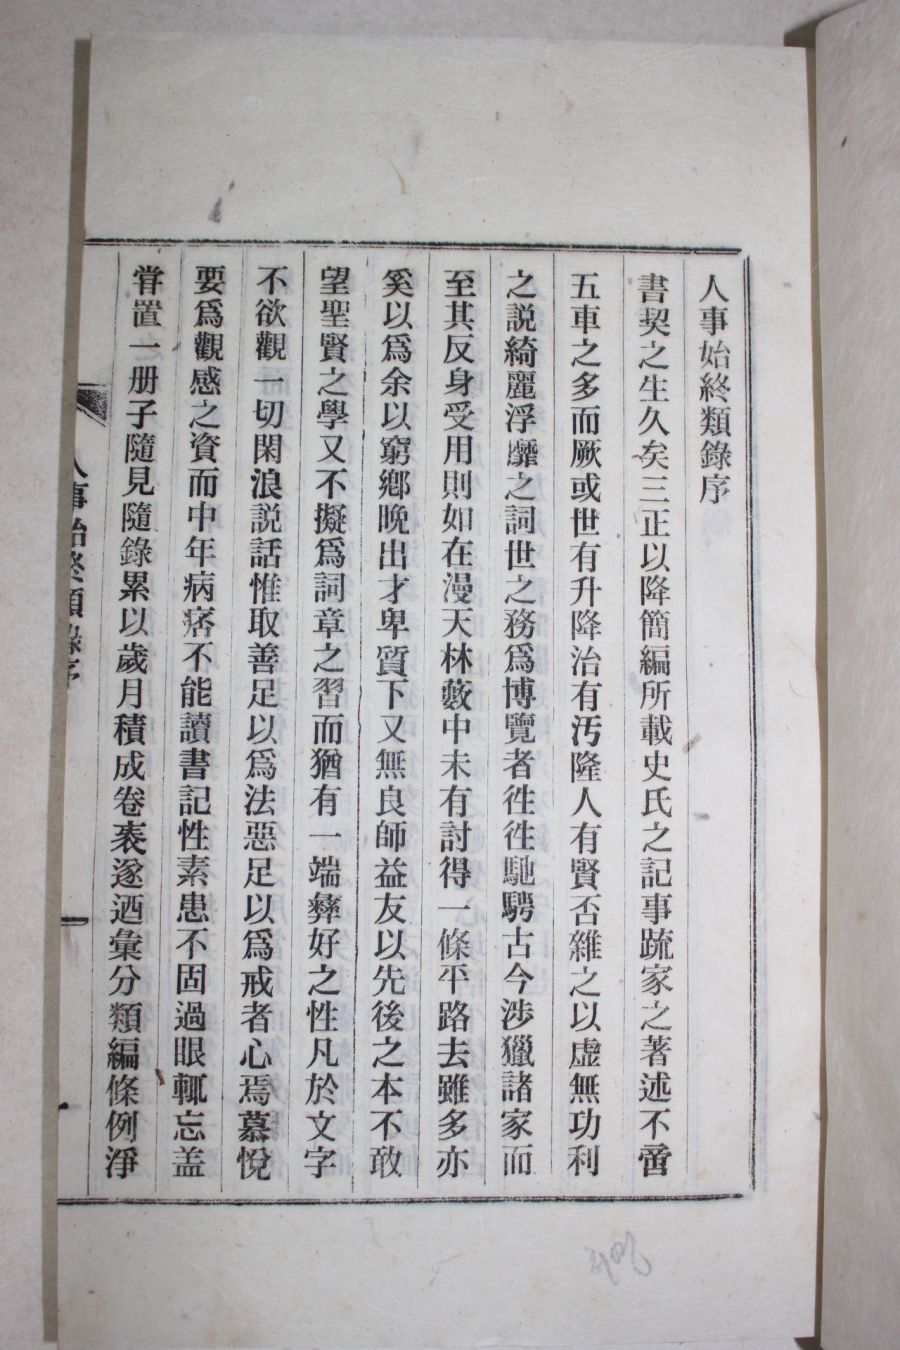 人事始終類錄序
書契之生久矣三正以降簡編所載史氏之記事䟽家之著述不啻
五車之多而厥或世有升降治有汚隆人有賢否雜之以虛無功利
之説綺麗浮靡之詞世之務爲博覽者徃徃馳騁古今涉獵諸家而
至其反身受用則如在漫天林藪中未有討得一條平路去雖多亦
奚以爲余以窮鄕晩出才卑質下又無良師益友以先後之本不敢
望聖賢之學又不擬爲詞章之習而猶有一端彛好之性凡於文字
不欲觀一切閑浪説話惟取善足以爲法惡足以爲戒者心焉慕悅
要爲觀感之資而中年病痞不能讀書記性素患不固過眼輒忘盖
甞置一册子隨見隨錄累以歲月積成卷袠遂迺彙分類編條例淨
人事始終類錄序